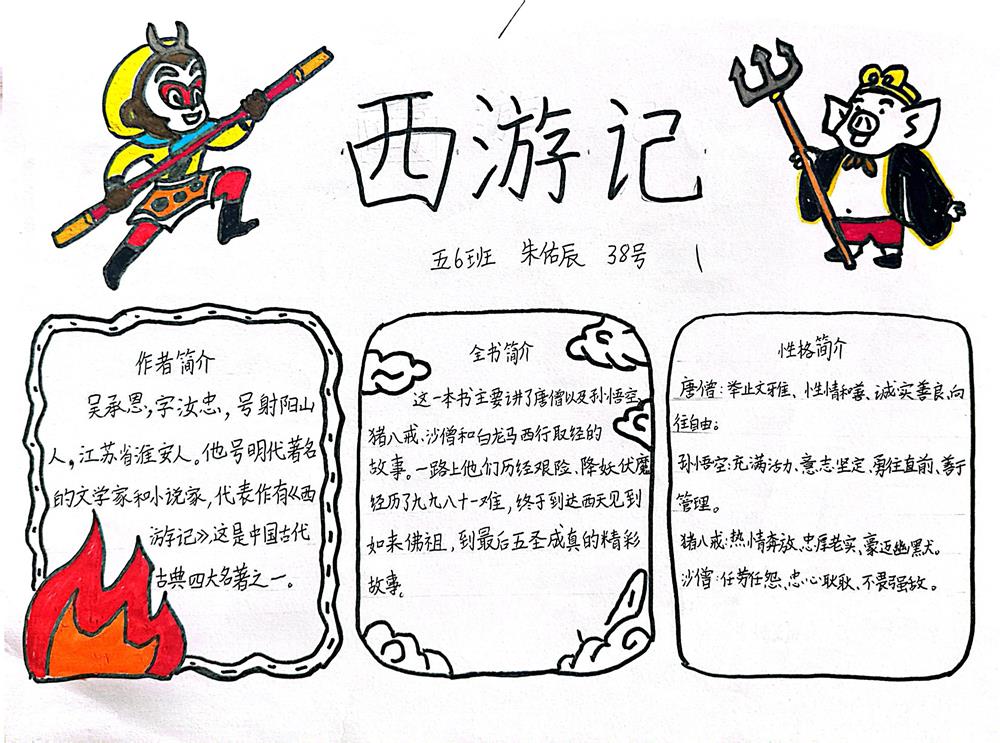 西游记
五6班 朱佑辰 38号
作者简介
吴承恩,字汝忠,号射阳山
人,江苏省淮安人。他号明代著名
的文学家和小说家,代表作有《西
游记》,这是中国古代
古典四大名著之一。
全书简介
这一本书主要讲了唐僧以及孙悟空
猪八戒、沙僧和白龙马西行取经的
故事。一路上他们历经艰险、降妖伏魔
经历了九九八十一难,终于到达西天见到
如来佛祖,到最后五圣成真的精彩
故事。
性格简介
唐僧:举止文雅、性情和善、诚实善良,向
往自由。
孙悟空:充满活力、意志坚定、勇往直前、善于
管理。
猪八戒:热情奔放、忠厚老实、豪迈幽黑犬。
沙僧:任劳任怨、忠心耿耿、不畏强敌。